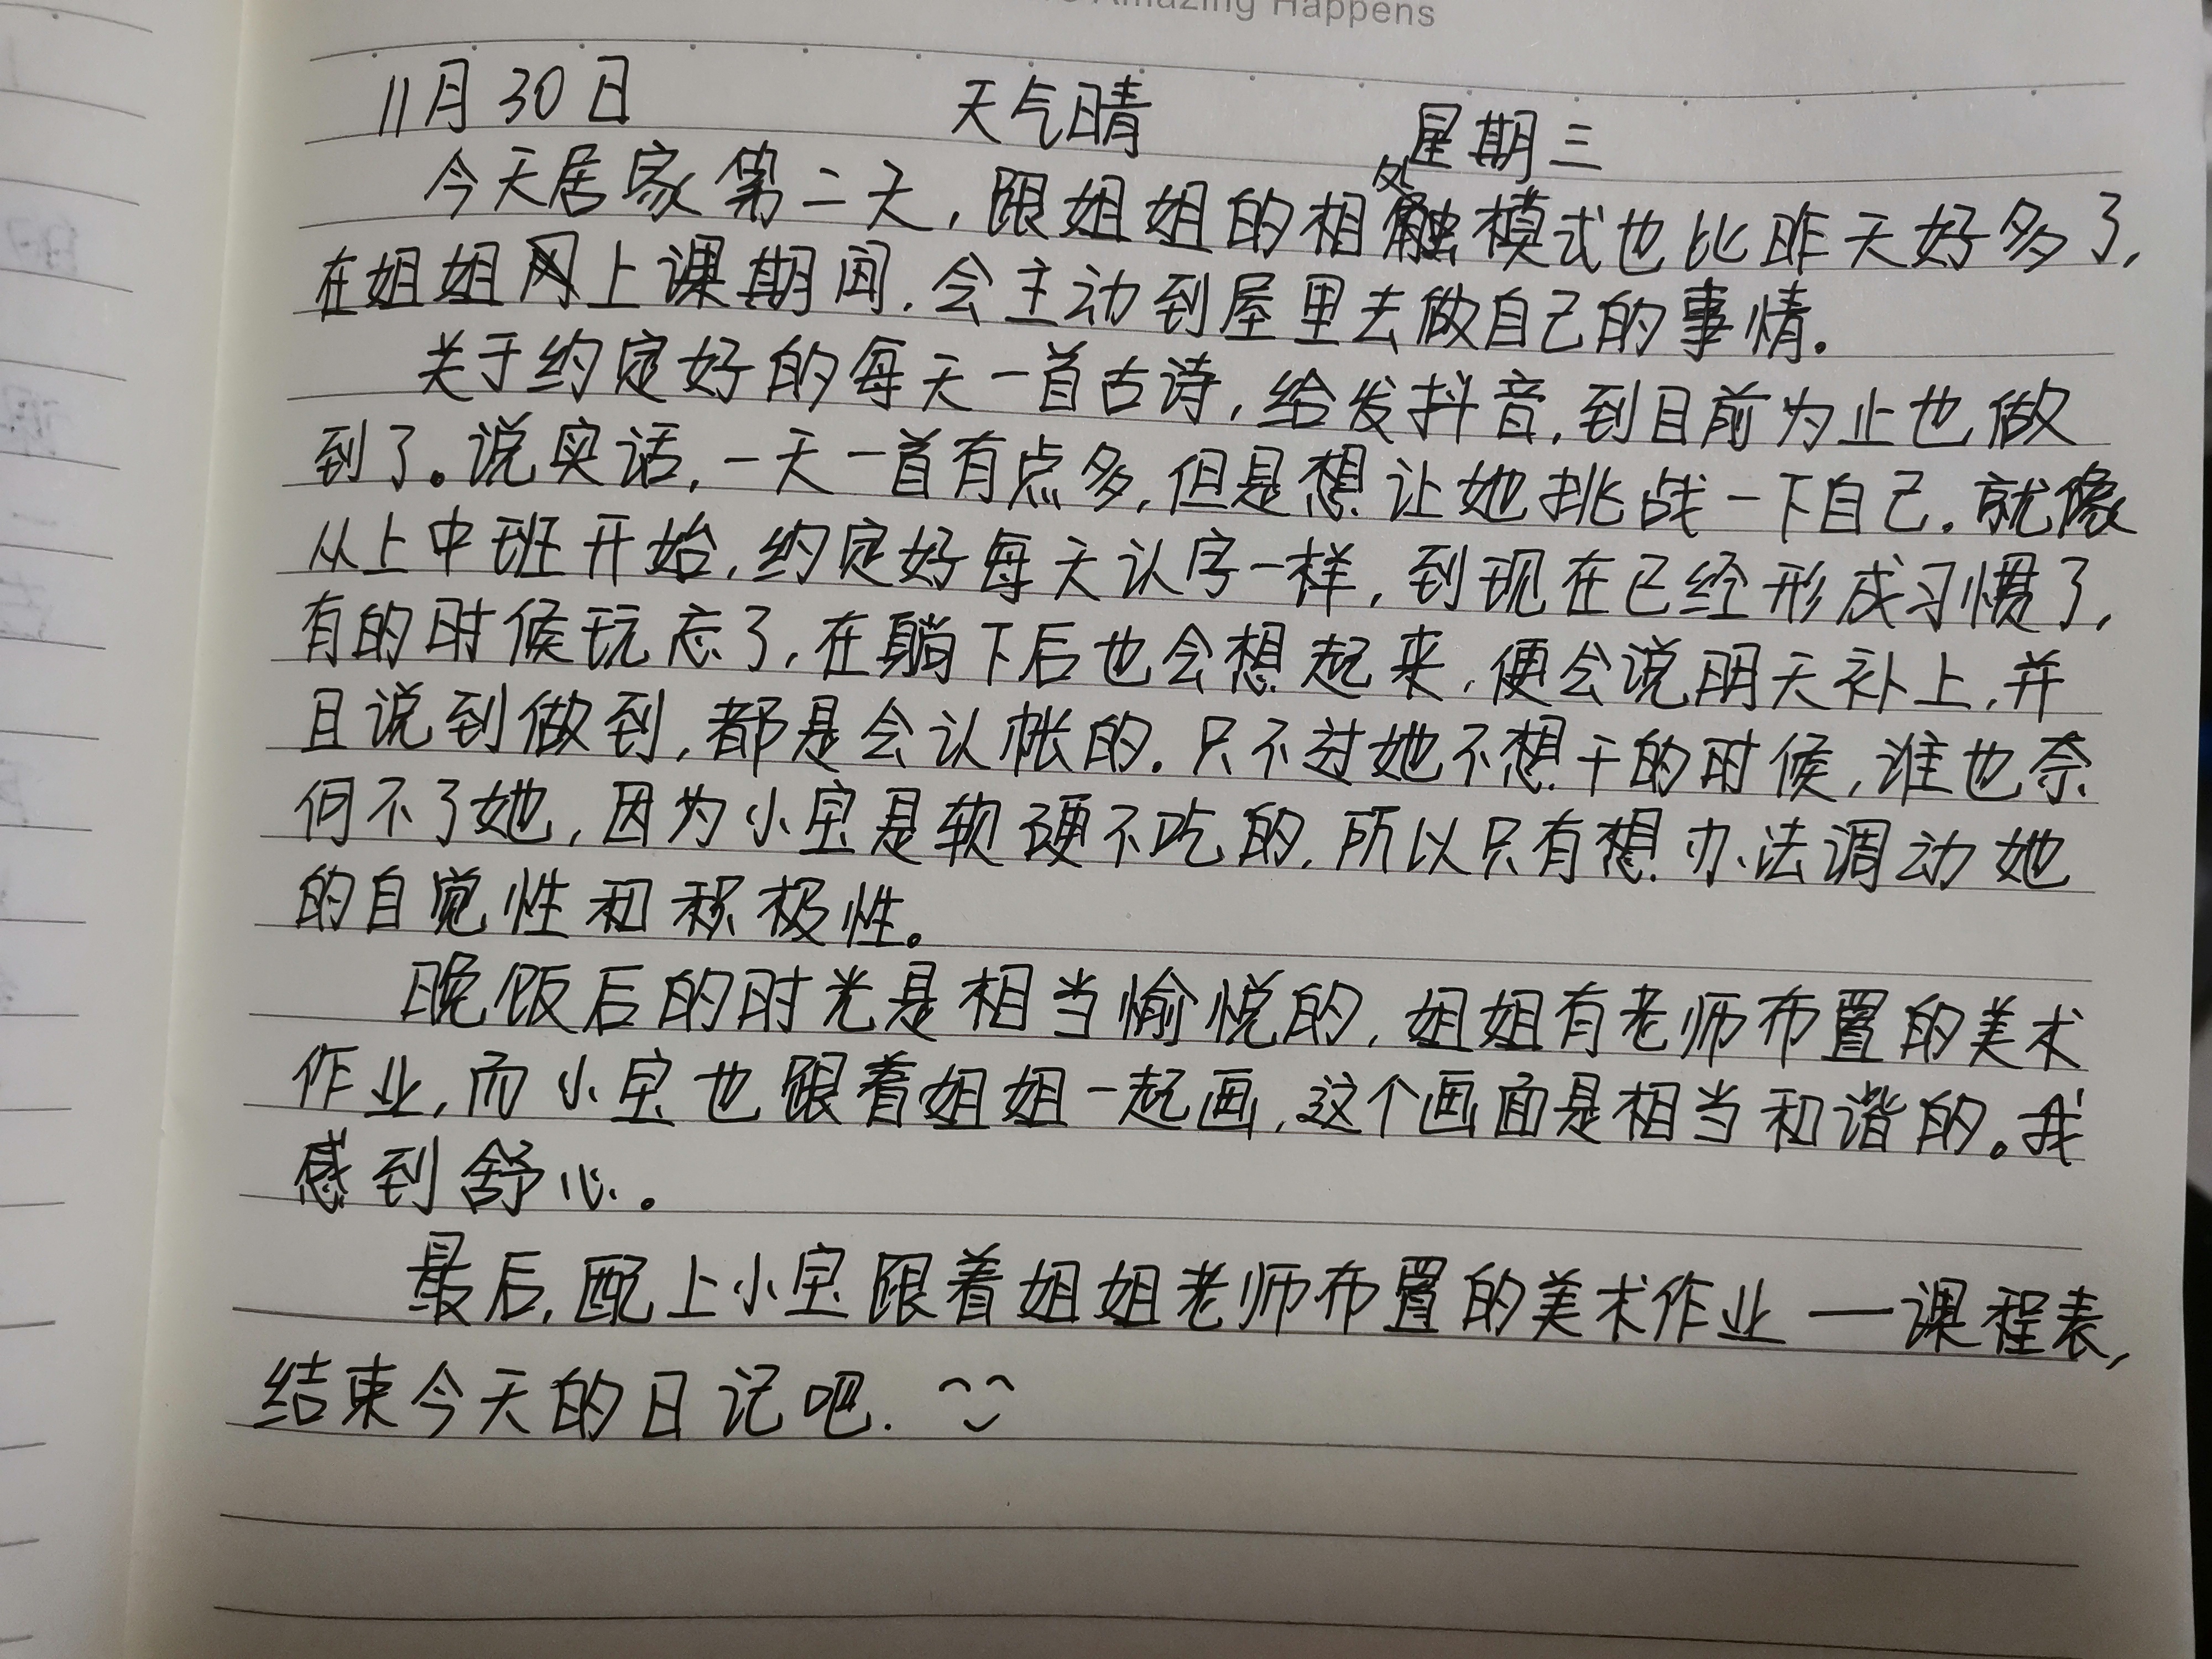 Amazing Happens
11月30日 天气晴 星期三
今天居家第二天,跟姐姐的相处模式也比昨天好多了,
在姐姐网上课期间,会主动到屋里去做自己的事情。
关于约定好的每天一首古诗,给发抖音,到目前为止也做
到了。说实话,一天一首有点多,但是想让她挑战一下自己。就像
从上中班开始,约定好每天认字一样,到现在已经形成习惯了,
有的时候玩忘了,在躺下后也会想起来,便会说明天补上,并
且说到做到,都是会认帐的。只不过她不想干的时候,谁也奈
何不了她,因为小宝是软硬不吃的,所以只有想办法调动她
的自觉性和积极性。
晚饭后的时光是相当愉悦的,姐姐有老师布置的美术
作业,而小宝也跟着姐姐一起画,这个画面是相当和谐的。我
感到舒心。
最后,配上小宝跟着姐姐老师布置的美术作业——课程表,
结束今天的日记吧.